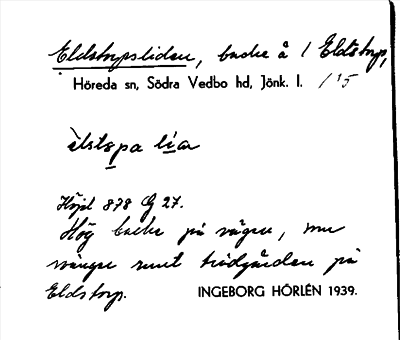 Eldstorpsliden, backe å 1 Eldstorp,
Höreda sn, Södra Vedbo hd, Jönk. l. 1/5
ls̀tspa lia
Höjd 878 G 27.
Hög backe på vägen, mu
svänger runt trädgården på
Eldstorp. INGEBORG HÖRLÉN 1939.